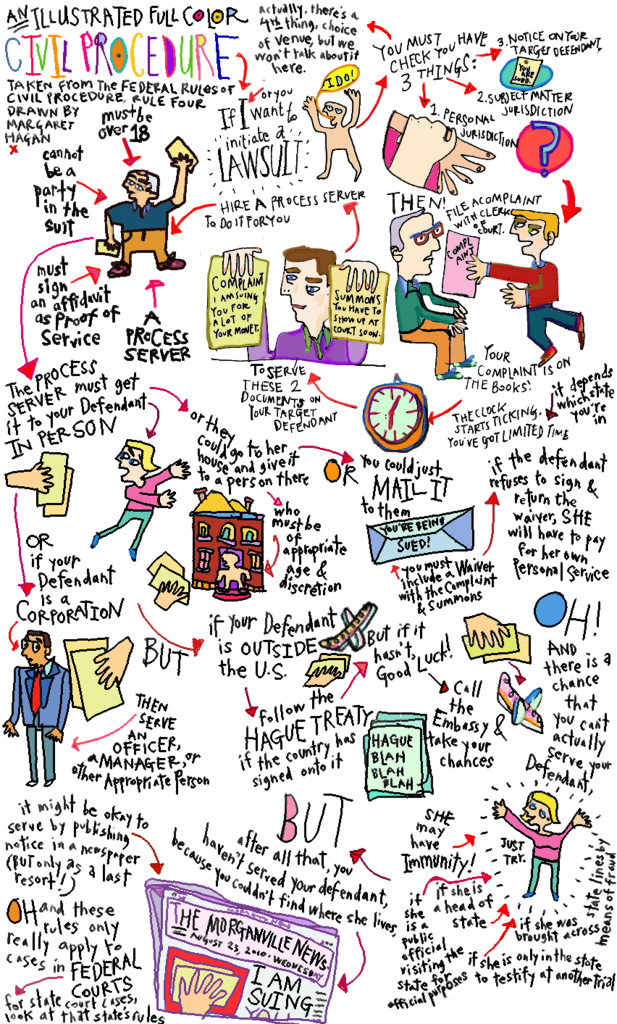 AN ILLUSTRATED FULL COLOR
CIVIL PROCEDURE
TAKEN FROM THE FEDERAL RULES OF
CIVIL PROCEDURE, RULE FOUR
DRAWN BY
MARGARET
HAGAN
x
actually, there's a
4th thing, choice
of venue, but we
won't talk about it
here.
If I
or you
want to
initiate a
LAWSUIT
I DO!
YOU MUST
CHECK YOU HAVE
3 THINGS:
1. PERSONAL
JURISDICTION
2. SUBJECT MATTER
JURISDICTION
?
3. NOTICE ON YOUR
TARGET DEFENDANT.
YOU ARE
SUED.
THEN!
FILE A COMPLAINT
WITH CLERK
OF
COURT.
COMPL
AINT
YOUR
COMPLAINT IS ON
THE BOOKS!
THE CLOCK
STARTS TICKING,
YOU'VE GOT LIMITED TIME
it depends
which state
you're
in
TO SERVE
THESE 2
DOCUMENTS ON
YOUR TARGET
DEFENDANT
COMPLAIN
I AM SUING
YOU FOR
A LOT OF
YOUR MONEY.
SUMMONS
YOU HAVE TO
SHOW UP AT
COURT SOON.
HIRE A PROCESS SERVER
TO DO IT FOR YOU
must be
over 18
cannot
be a
party
in the
suit
must
sign
an affidavit
as Proof of
Service
A
PROCESS
SERVER
The PROCESS
SERVER must get
it to your Defendant
IN PERSON
or they
could go to her
house and give it
to a person there
who
must be
of appropriate
age &
discretion
OR
you could just
MAIL IT
to them
YOU'RE BEING
SUED!
you must
include a Waiver
with the Complaint
& Summons
if the defendant
refuses to sign &
return the
waiver, SHE
will have to pay
for her own
Personal Service
OR
if your
Defendant
is a
CORPORATION
THEN
SERVE
AN
OFFICER,
a MANAGER, or
other Appropriate Person
BUT
if your Defendant
is OUTSIDE
the U.S.
follow the
HAGUE TREATY
if the country has
signed onto it
But if it
hasn't,
Good Luck!
HAGUE
BLAH
BLAH
BLAH
Call
the
Embassy
take your
chances
&
OH!
AND
there is a
chance
that
you can't
actually
serve your
Defendant.
JUST
TRY.
SHE
may
have
Immunity!
if
she
is a
public
official
visiting the
state for
official purposes
if she is
a head of
state
if she is only in the state
to testify at another trial
if she was
brought across
state lines by
means of fraud
BUT
after all that, you
haven't served your defendant,
because you couldn't find where she lives,
it might be okay to
serve by publishing
notice in a newspaper
(but only as a last
resort!)
THE MORGANVILLE NEWS
AUGUST 23, 2010. WEDNESDAY
I AM
SUING
YO
OH and these
rules only
really apply to
cases in FEDERAL
COURTS
for state court cases,
look at that state's rules